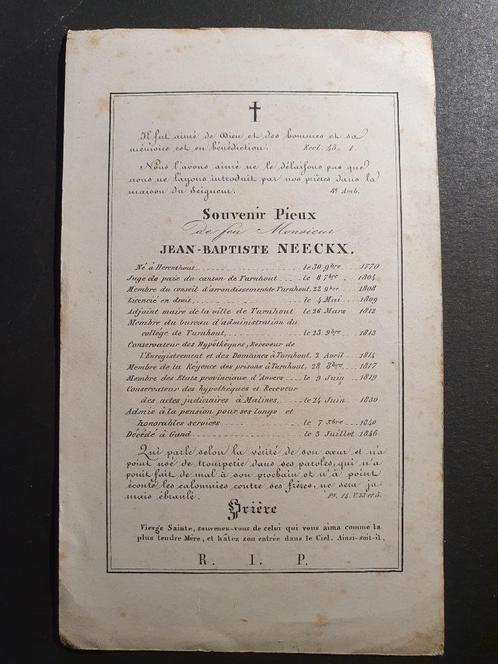 Il fut aimé de Dieu et des hommes et sa
mémoire est en bénédiction. Eccl. 45. 1.
Nous l'avons aimé ne le délaissons pas que
nous ne l'ayons introduit par nos prières dans la
maison du Seigneur. St Amb.
Souvenir Pieux
de feu Monsieur
JEAN-BAPTISTE NEECKX.
Né à Herenthout le 30 9bre 1770
Juge de paix du canton de Turnhout le 8 7bre 1804
Membre du conseil d'arrondissement de Turnhout, 22 9bre 1808
Licencié en droit le 4 Mai 1809
Adjoint maire de la ville de Turnhout le 26 Mars 1812
Membre du bureau d'administration du
collège de Turnhout, le 23 9bre 1813
Conservateur des Hypothèques, Receveur de
l'Enregistrement et des Domaines à Turnhout, 2 Avril 1814
Membre de la Régence des prisons à Turnhout, 28 8bre 1817
Membre des Etats provinciaux d'Anvers le 9 Juin 1819
Conservateur des hypothèques et Receveur
des actes judiciaires à Malines, le 24 Juin 1830
Admis à la pension pour ses longs et
honorables services le 7 Xbre 1840
Décédé à Gand le 3 Juillet 1846
Qui parle selon la vérité de son cœur et n'a
point usé de tromperie dans ses paroles, qui n'a
point fait de mal à son prochain et n'a point
écouté les calomnies contre ses frères, ne sera ja-
mais ébranlé. Ps. 14. V. 23 et 5.
Prière
Vierge Sainte, souvenez-vous de celui qui vous aima comme la
plus tendre Mère, et hâtez son entrée dans le Ciel. Ainsi-soit-il.
R. I. P.